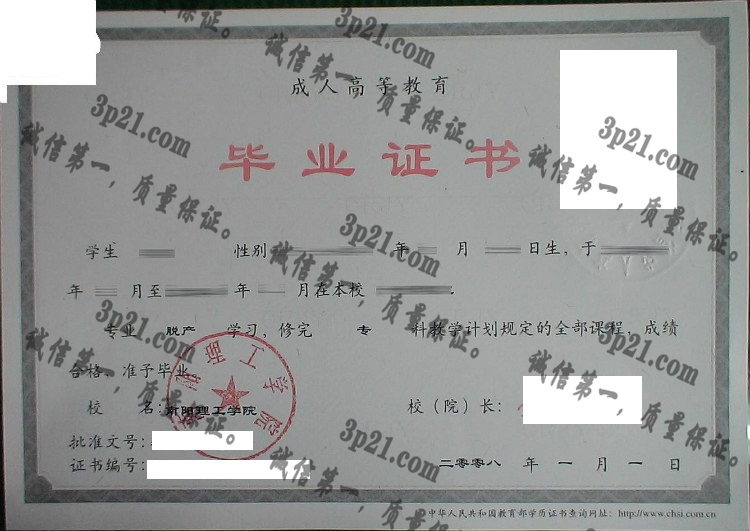 成人高等教育
毕业证书
学生 性别 年 月 日生，于
年 月至 年 月在本校
专业 脱产 学习，修完 专 科教学计划规定的全部课程，成绩
合格，准予毕业。
校 名：南阳理工学院 校（院）长：
批准文号：
证书编号： 二零零八 年 一 月 一 日
中华人民共和国教育部学历证书查询网址：http://www.chsi.com.cn
3p21.com
诚信第一，质量保证。
3p21.com
诚信第一，质量保证。
3p21.com
诚信第一，质量保证。
3p21.com
诚信第一，质量保证。
3p21.com
诚信第一，质量保证。
3p21.com
诚信第一，质量保证。
3p21.com
诚信第一，质量保证。
3p21.com
诚信第一，质量保证。